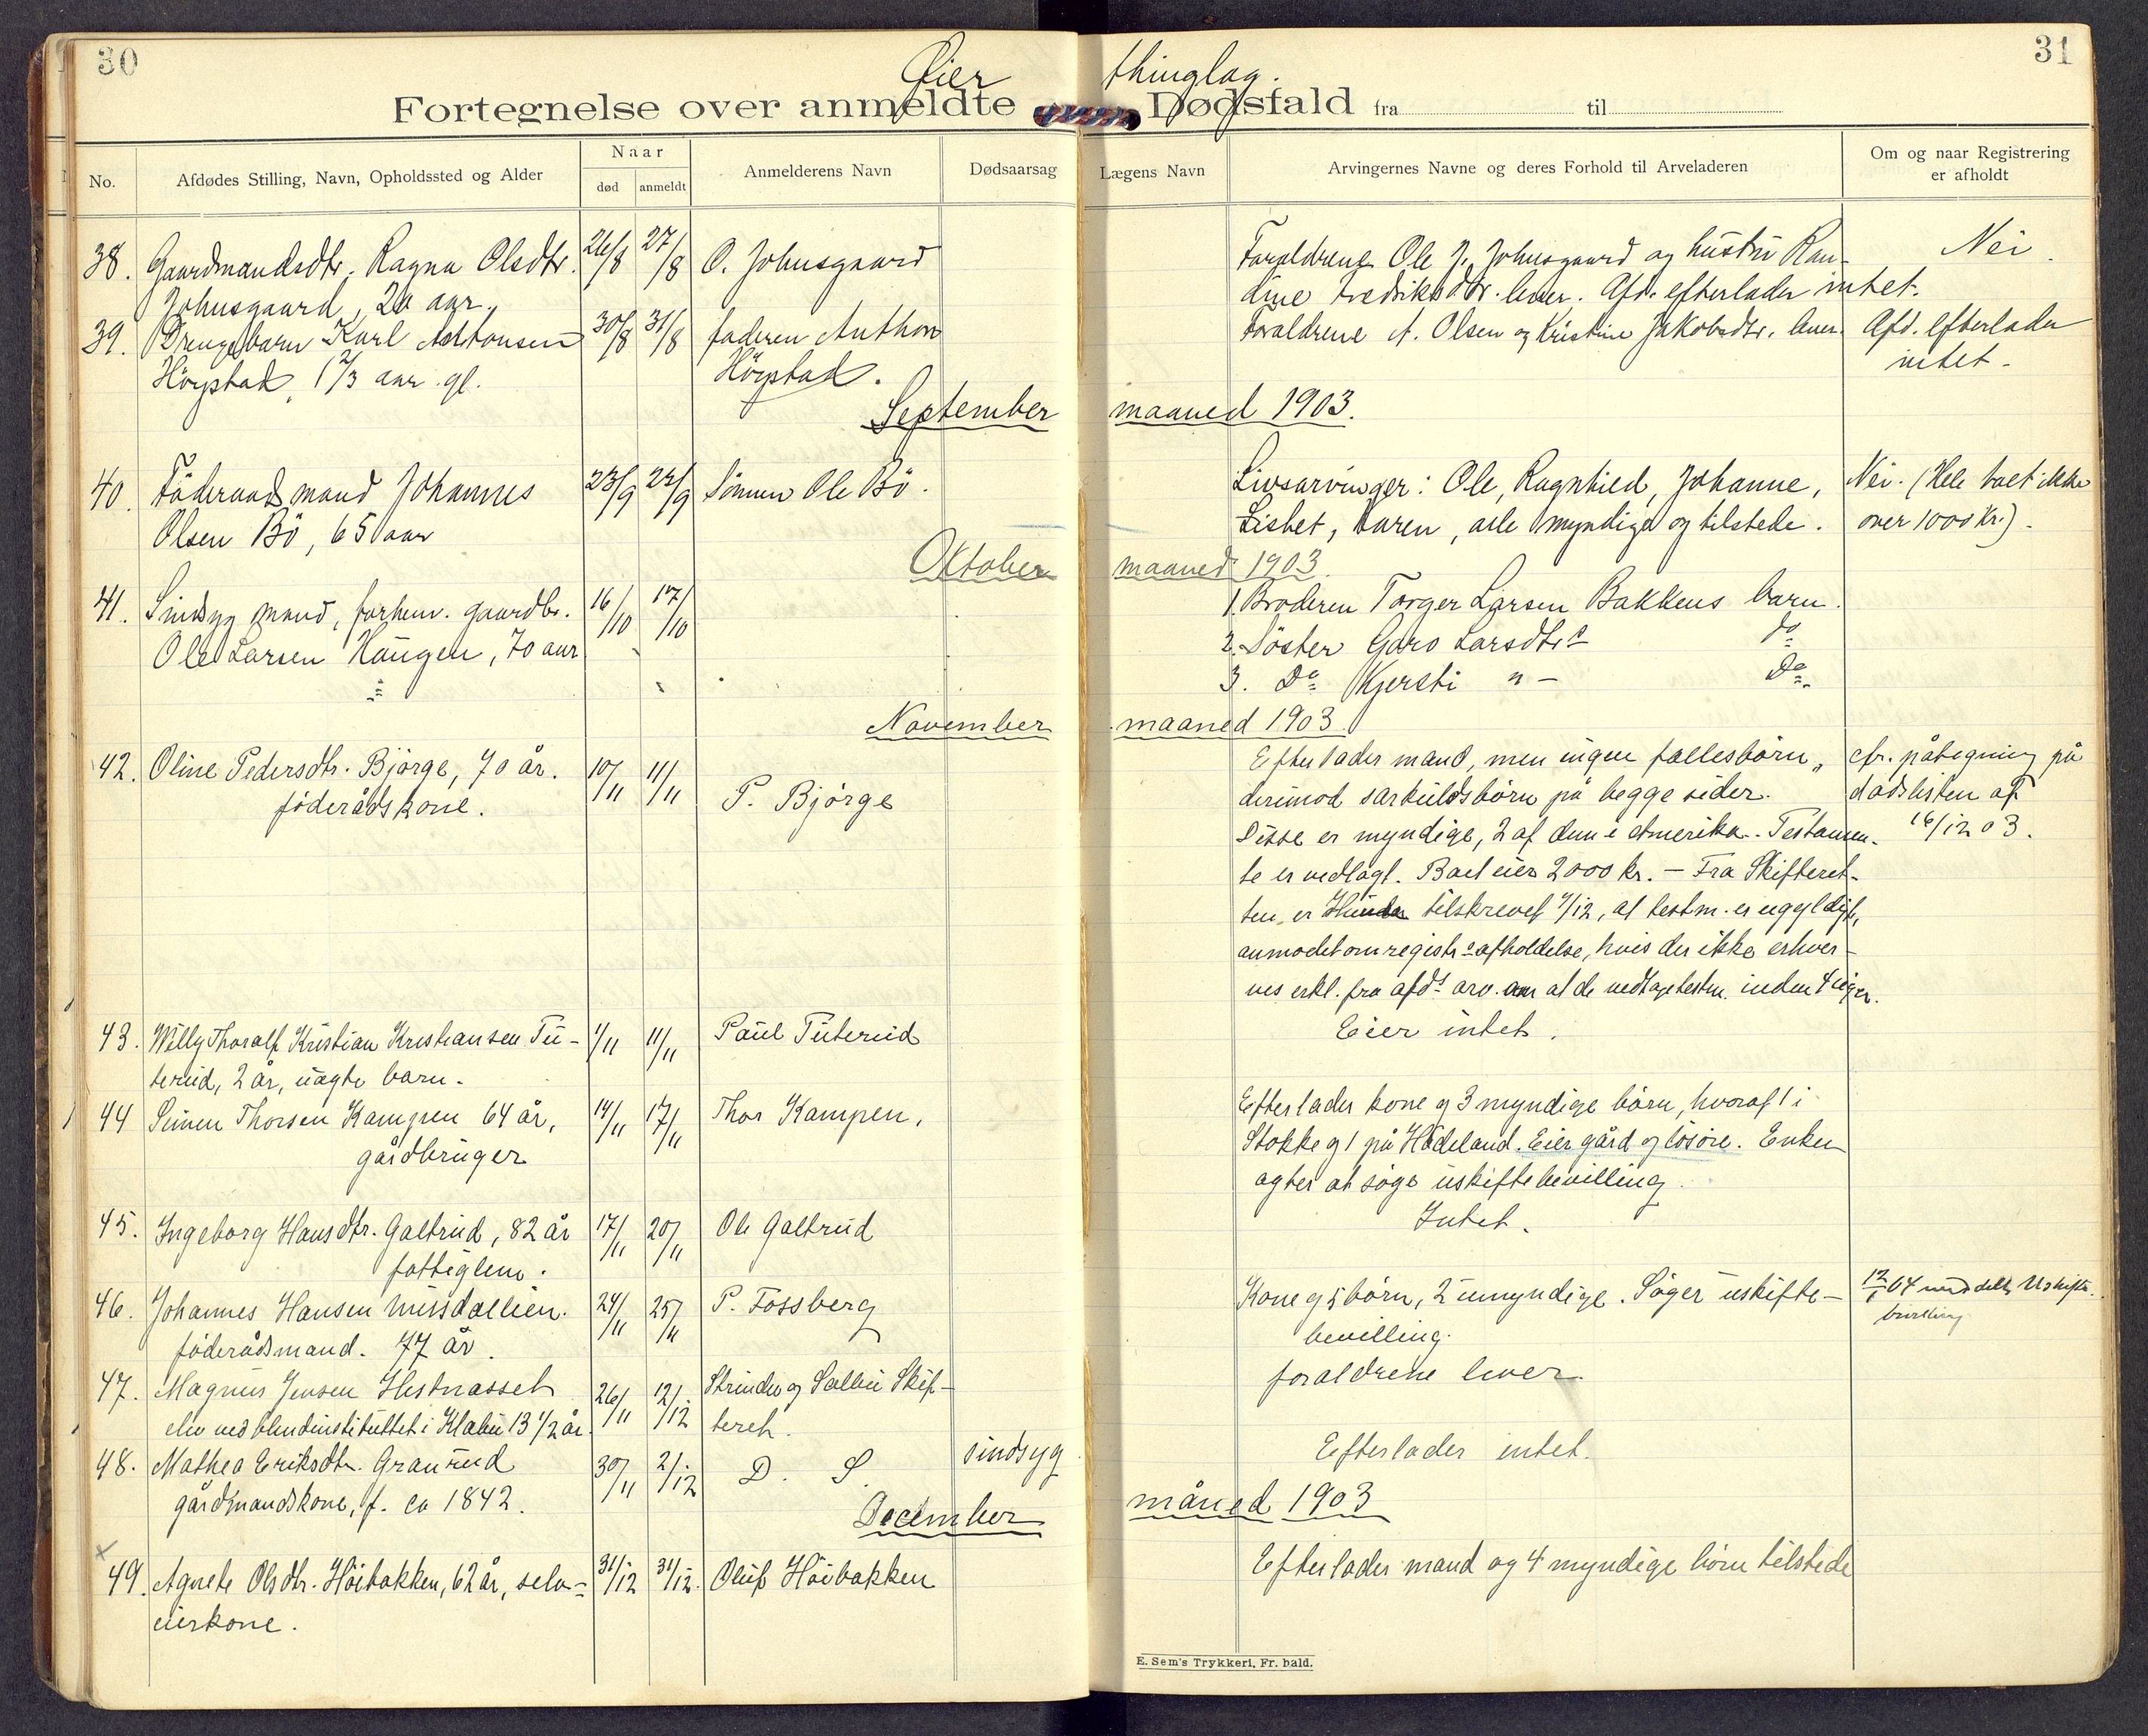 30
31
Øier thinglag.
Fortegnelse over anmeldte Dødsfald fra til
No.
Afdødes Stilling, Navn, Opholdssted og Alder
Naar
død
anmeldt
Anmelderens Navn
Dødsaarsag
Lægens Navn
Arvingernes Navne og deres Forhold til Arveladeren
Om og naar Registrering
er afholdt
38. Gaardmandsdtr. Ragna Olsdtr. 26/8 27/8 O. Johnsgaard Forældrene Ole J. Johnsgaard og hustru Ran- Nei.
Johnsgaard, 20 aar. dine Fredriksdtr. lever. Afd. efterlader intet.
39. Drengebarn Karl Anthonsen 30/8 31/8 faderen Anthon Forældrene A. Olsen og Kristine Jakobsdtr. lever. Afd. efterlader
Hörpstad, 1 2/3 aar gl. Hörpstad. intet.
September maaned 1903.
40. Föderaadsmand Johannes 23/9 22/9 Sönnen Ole Bö. Livsarvinger: Ole, Ragnhild, Johanne, Nei. (Hele boet ikke
Olsen Bö, 65 aar Lisbet, Karen, alle myndige og tilstede. over 1000 Kr.).
Oktober maaned 1903.
41. Sindsyg mand, forhenv. gaardbr. 16/10 17/10 1. Broderen Torger Larsen Bakkens barn.
Ole Larsen Haugen, 70 aar 2. Söster Garo Larsdtrs do
3. Do Kjersti " - Do
November maaned 1903.
42. Oline Pedersdtr. Björge, 70 år. 10/11 11/11 P. Björge Efterlader mand, men ingen fællesbörn, cfr. påtegning på
föderådskone. derimod særkuldsbörn på begge sider. dødslisten af
Disse er myndige, 2 af dem i Amerika. Testamen- 16/12 03.
te er vedlagt. Boet eier 2000 kr. – Fra Skifteret-
ten er tilskrevet /12, at testm. er ugyldigt,
anmodet om registr. afholdelse, hvis der ikke erhver-
ves erkl. fra afds arv. om at de vedtage testm. inden 4 uger.
43. Willy Thoralf Kristian Kristiansen Tu- 1/11 11/11 Paul Tuterud Eier intet.
terud, 2 år, uægte barn.
44 Simen Thorsen Kampen 64 år, 14/11 17/11 Thor Kampen. Efterlader kone og 3 myndige börn, hvoraf 1 i
gårdbruger Stokke og 1 på Hadeland. Eier gård og lösöre. Enken
agter at söge uskiftebevilling.
45. Ingeborg Hansdtr. Galtrud, 82 år 17/11 20/11 Ole Galtrud Intet.
fattiglem.
46. Johannes Hansen Musdallien. 24/11 25/11 P. Fossberg Kone og 5 börn, 2 umyndige. Söger uskifte- 12/1 04 meddelt Uskifte-
föderådsmand. 77 år. bevilling. bevilling
47. Magnus Jensen Hestnasset 26/11 12/12 Strinden og Selbu Skif- forældrene lever.
elev ved blindinstituttet i Klæbu 13 1/2 år. teret.
48. Mathea Eriksdtr. Granrud 30/11 2/12 D. S. sindsyg Efterlader intet.
gårdmandskone, f. ca 1842.
December måned 1903
49. Agnete Olsdtr. Höibakken, 62 år, selv- 31/12 31/12. Oluf Höibakken Efterlader mand og 4 myndige börn tilstede
eierkone.
E. Sem's Trykkeri, Fr. hald.